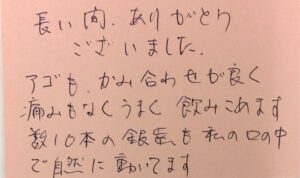 長い間、ありがとう
ございました。
アゴも、かみ合わせが良く
痛みもなくうまく飲みこめます
数10本の銀歯も私の口の中
で自然に動いてます